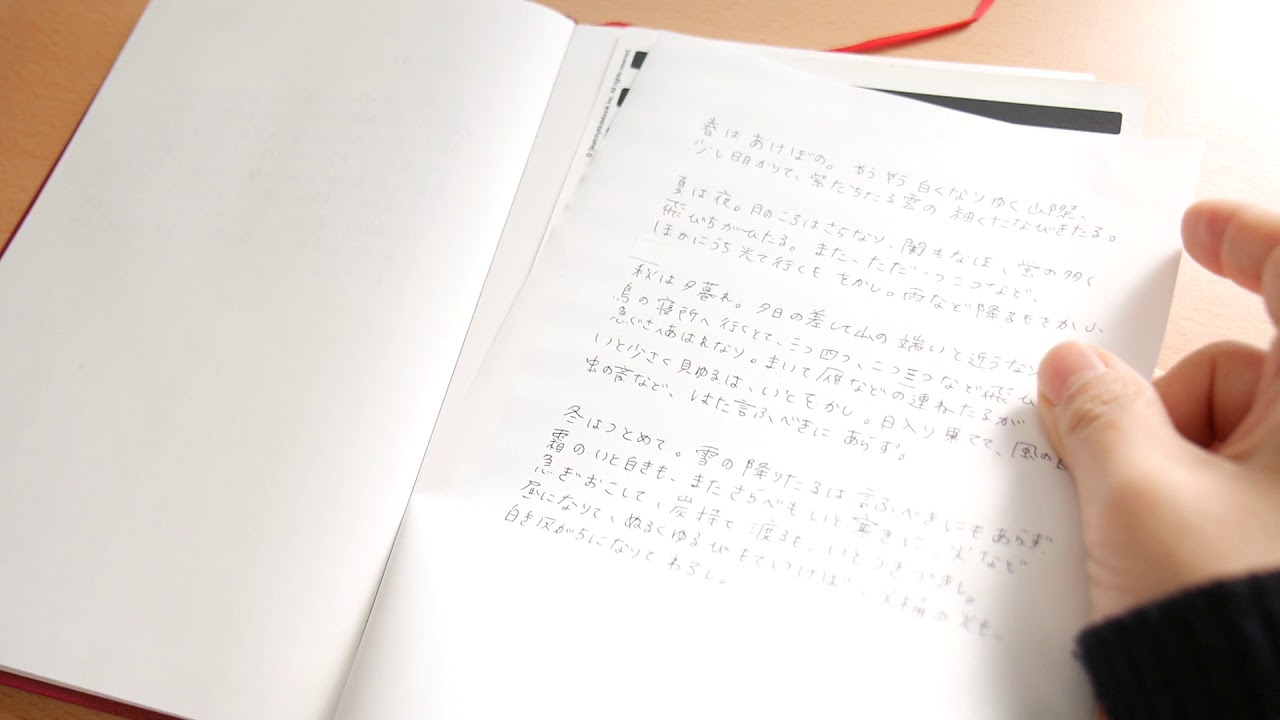 © SketchyNotebook Inc. All rights reserved.
春はあけぼの。やうやう白くなりゆく山際、
少し明かりて、紫だちたる雲の細くたなびきたる。
夏は夜。月のころはさらなり、闇もなほ、蛍の多く
飛びちがひたる。また、ただ一つ二つなど、
ほかにうち光て行くもをかし。雨など降るもをかし、
秋は夕暮れ。夕日の差して山の端いと近うなり
鳥の寝所へ行くとて、三つ四つ、二つ三つなど飛び
急ぐさへあはれなり。まいて雁などの連ねたるが
いと少さく見ゆるは、いとをかし。日入り果てて、風の
虫の音など、はた言ふべきにあらず。
冬はつとめて。雪の降りたるは言ふべきにもあらず、
霜のいと白きも、またさらべもいと寒きに、火など
急ぎおこして、炭持て渡るも、いとつきづきし。
昼になりて、ぬるくゆるびもていけば、火桶の火も、
白き灰がちになりてわろし。